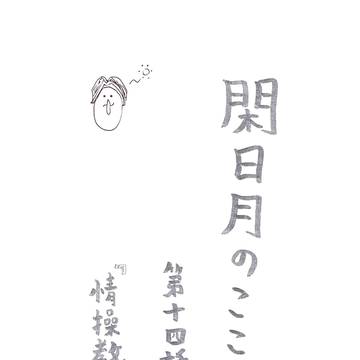 閑日月のここ
第十四話
『情操教